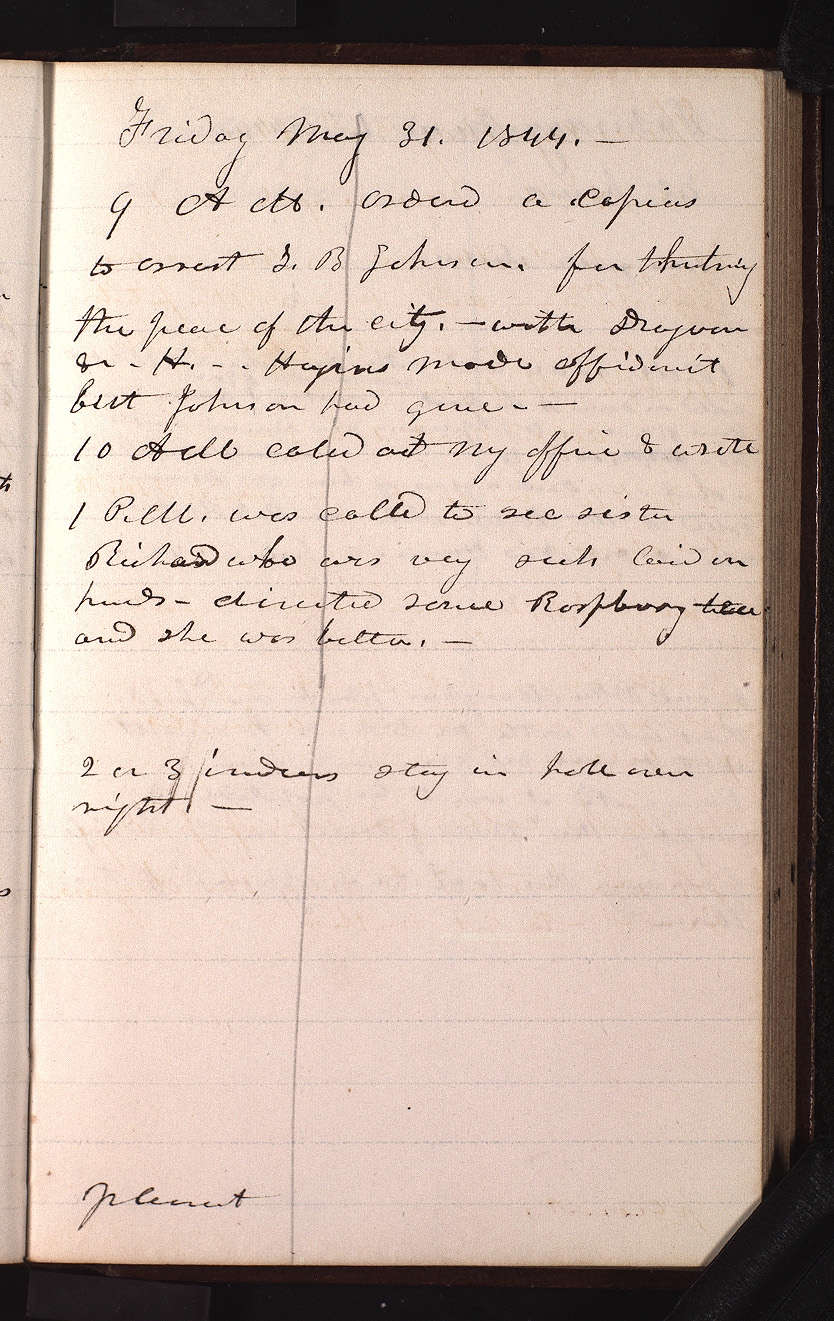 Friday May 31. 1844. —
9 A M. orderd a Capias
to arrest T. B Johnson. for thretnig
the peace of the city. — with Dragoon
&c - H. - . Higins made affidavit
but Johnson had gone - —
10 AM caled at my office & wrote
1 P.M. was called to see sister
Richard who was very sick laid on
hands - directed some Raspbury tea
and she was better. —
2 or 3 indians stay in hall over
night. —
pleasant